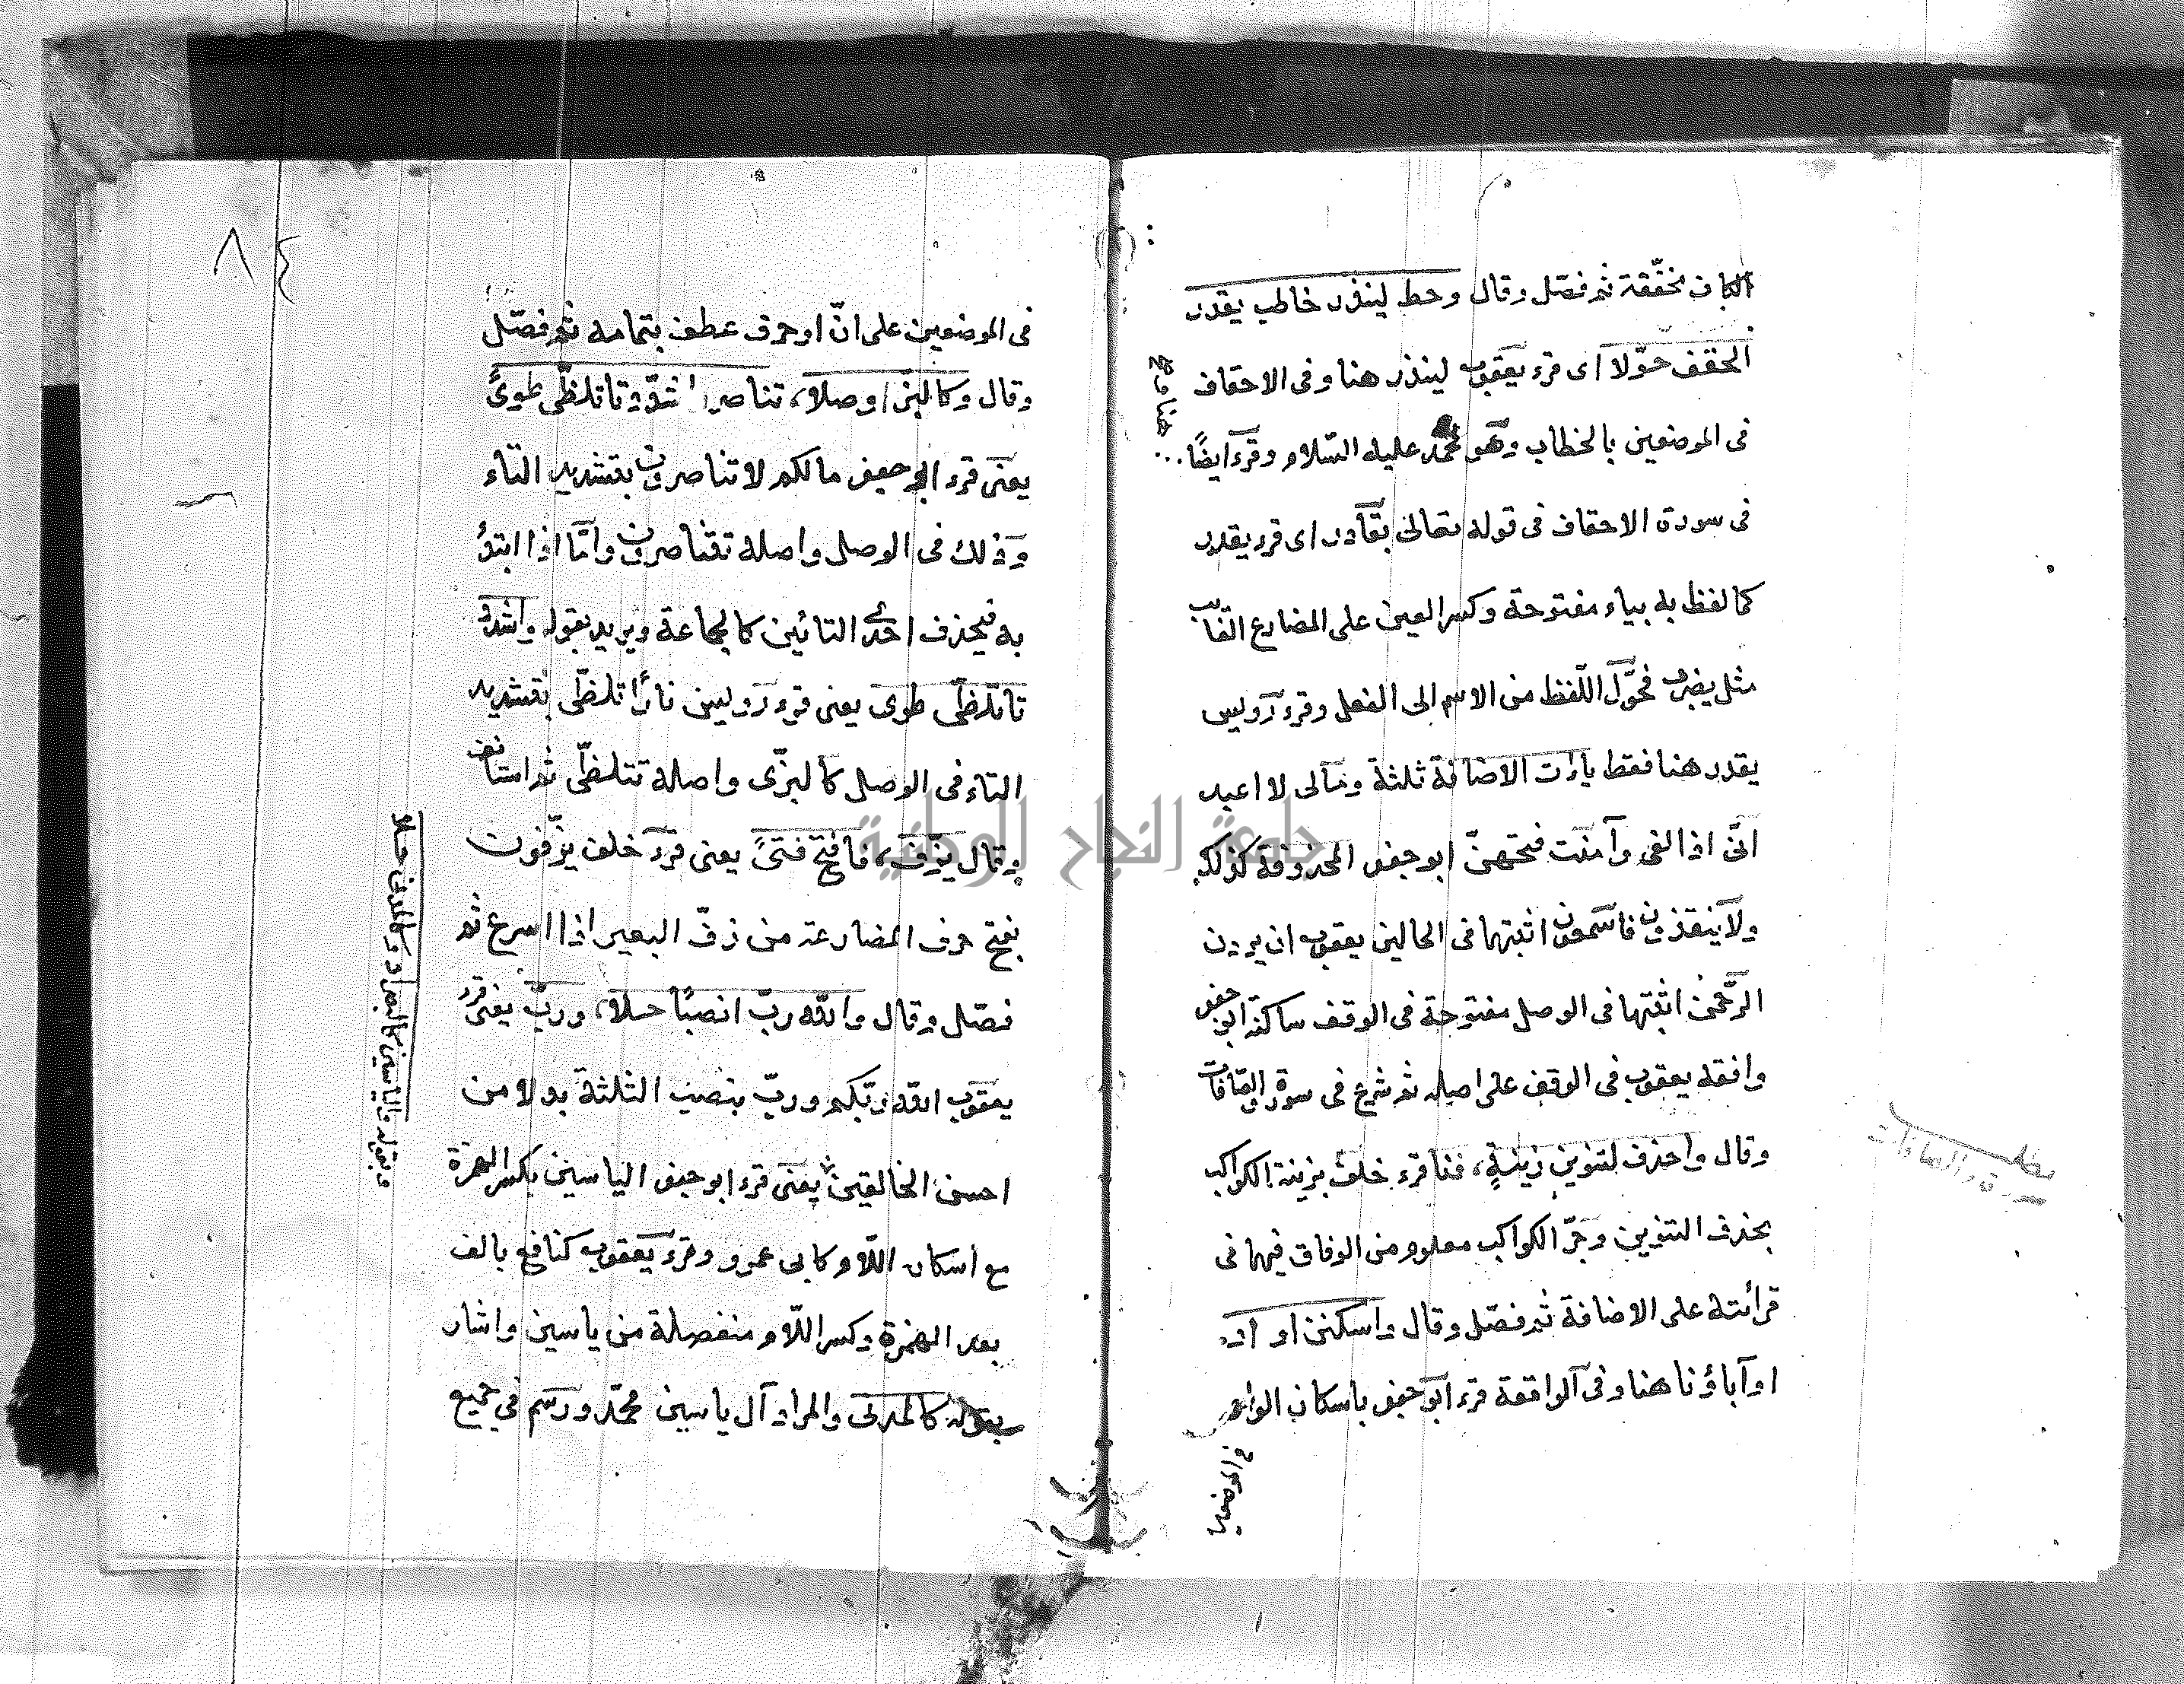 الكاف مخففة ثم فصّل وقال وحط لينذر خاطب يقدر
الحقف حوّلا اى قرء يعقوب لينذر هنا وفى الاحقاف
فى الموضعين بالخطاب وهو محمد عليه السّلام وقرء ايضًا
هنا
فى سورة الاحقاف فى قوله تعالى بقادر اى قرء يقدر
كما لفظ به بياء مفتوحة وكسر العين على المضارع الغايب
مثل يضرب فحوّل اللّفظ من الاسم الى الفعل وقرء رويس
يقدر هنا فقط ياءات الاضافة ثلثة ومالى لا اعبد
انّى اذا لفى وآمنت فتحهنّ ابو جعفر المحذوفة كذلك
ولا ينقذون فاسمعون اثبتها فى الحالين يعقوب ان يردن
الرّحمن اثبتها فى الوصل مفتوحة فى الوقف ساكنة ابو جعفر
وافقه يعقوب فى الوقف على اصله ثم شرع فى سورة الصّافات
وقال واحذف لتنوين زينةٍ، فنا قرء خلف بزينة الكواكب
بحذف التنوين وجرّ الكواكب معلوم من الوفاق فيها فى
قرائته على الاضافة ثم فصّل وقال واسكنن او اد
او آباؤنا هنا وفى الواقعة قرء ابو جعفر باسكان الواو
سورة والصافات
٨٤
فى الموضعين على انّ او حرف عطف بتمامه ثم فصّل
وقال وكالبزّ اوصلا، تناصر اشدد تا تلظّى طوىً
يعنى قرء ابو جعفر مالكم لا تناصرون بتشديد التاء
وذلك فى الوصل واصله تتناصرون وامّا اذا ابتدء
به فيحذف احدى التائين كالجماعة ويريد بقوله واشدد
تا تلظّى طوى يعنى قرء رويس نارًا تلظّى بتشديد
التاء فى الوصل كالبزّى واصله تتلظّى ثم استانف
وقال يزّف، فافتح فتىً يعنى قرء خلف يزّفون
بفتح حرف المضارعة من زفّ البعير اذا اسرع ثم
فصّل وقال والله ربّ انصبًا حلا، وربّ يعنى قرء
يعقوب الله ربّكم وربّ بنصب الثلثة بدلا من
احسن الخالقين يعنى قرء ابو جعفر الياسين بكسر الهمزة
مع اسكان اللّام كابى عمرو وقرء يعقوب كنافع بالف
بعد الهمزة وكسر اللّام منفصلة من ياسين واشار
بقوله كالمدنى والمراد آل ياسين محمّد ورسم فى جميع
جامعة النجاح الوطنية